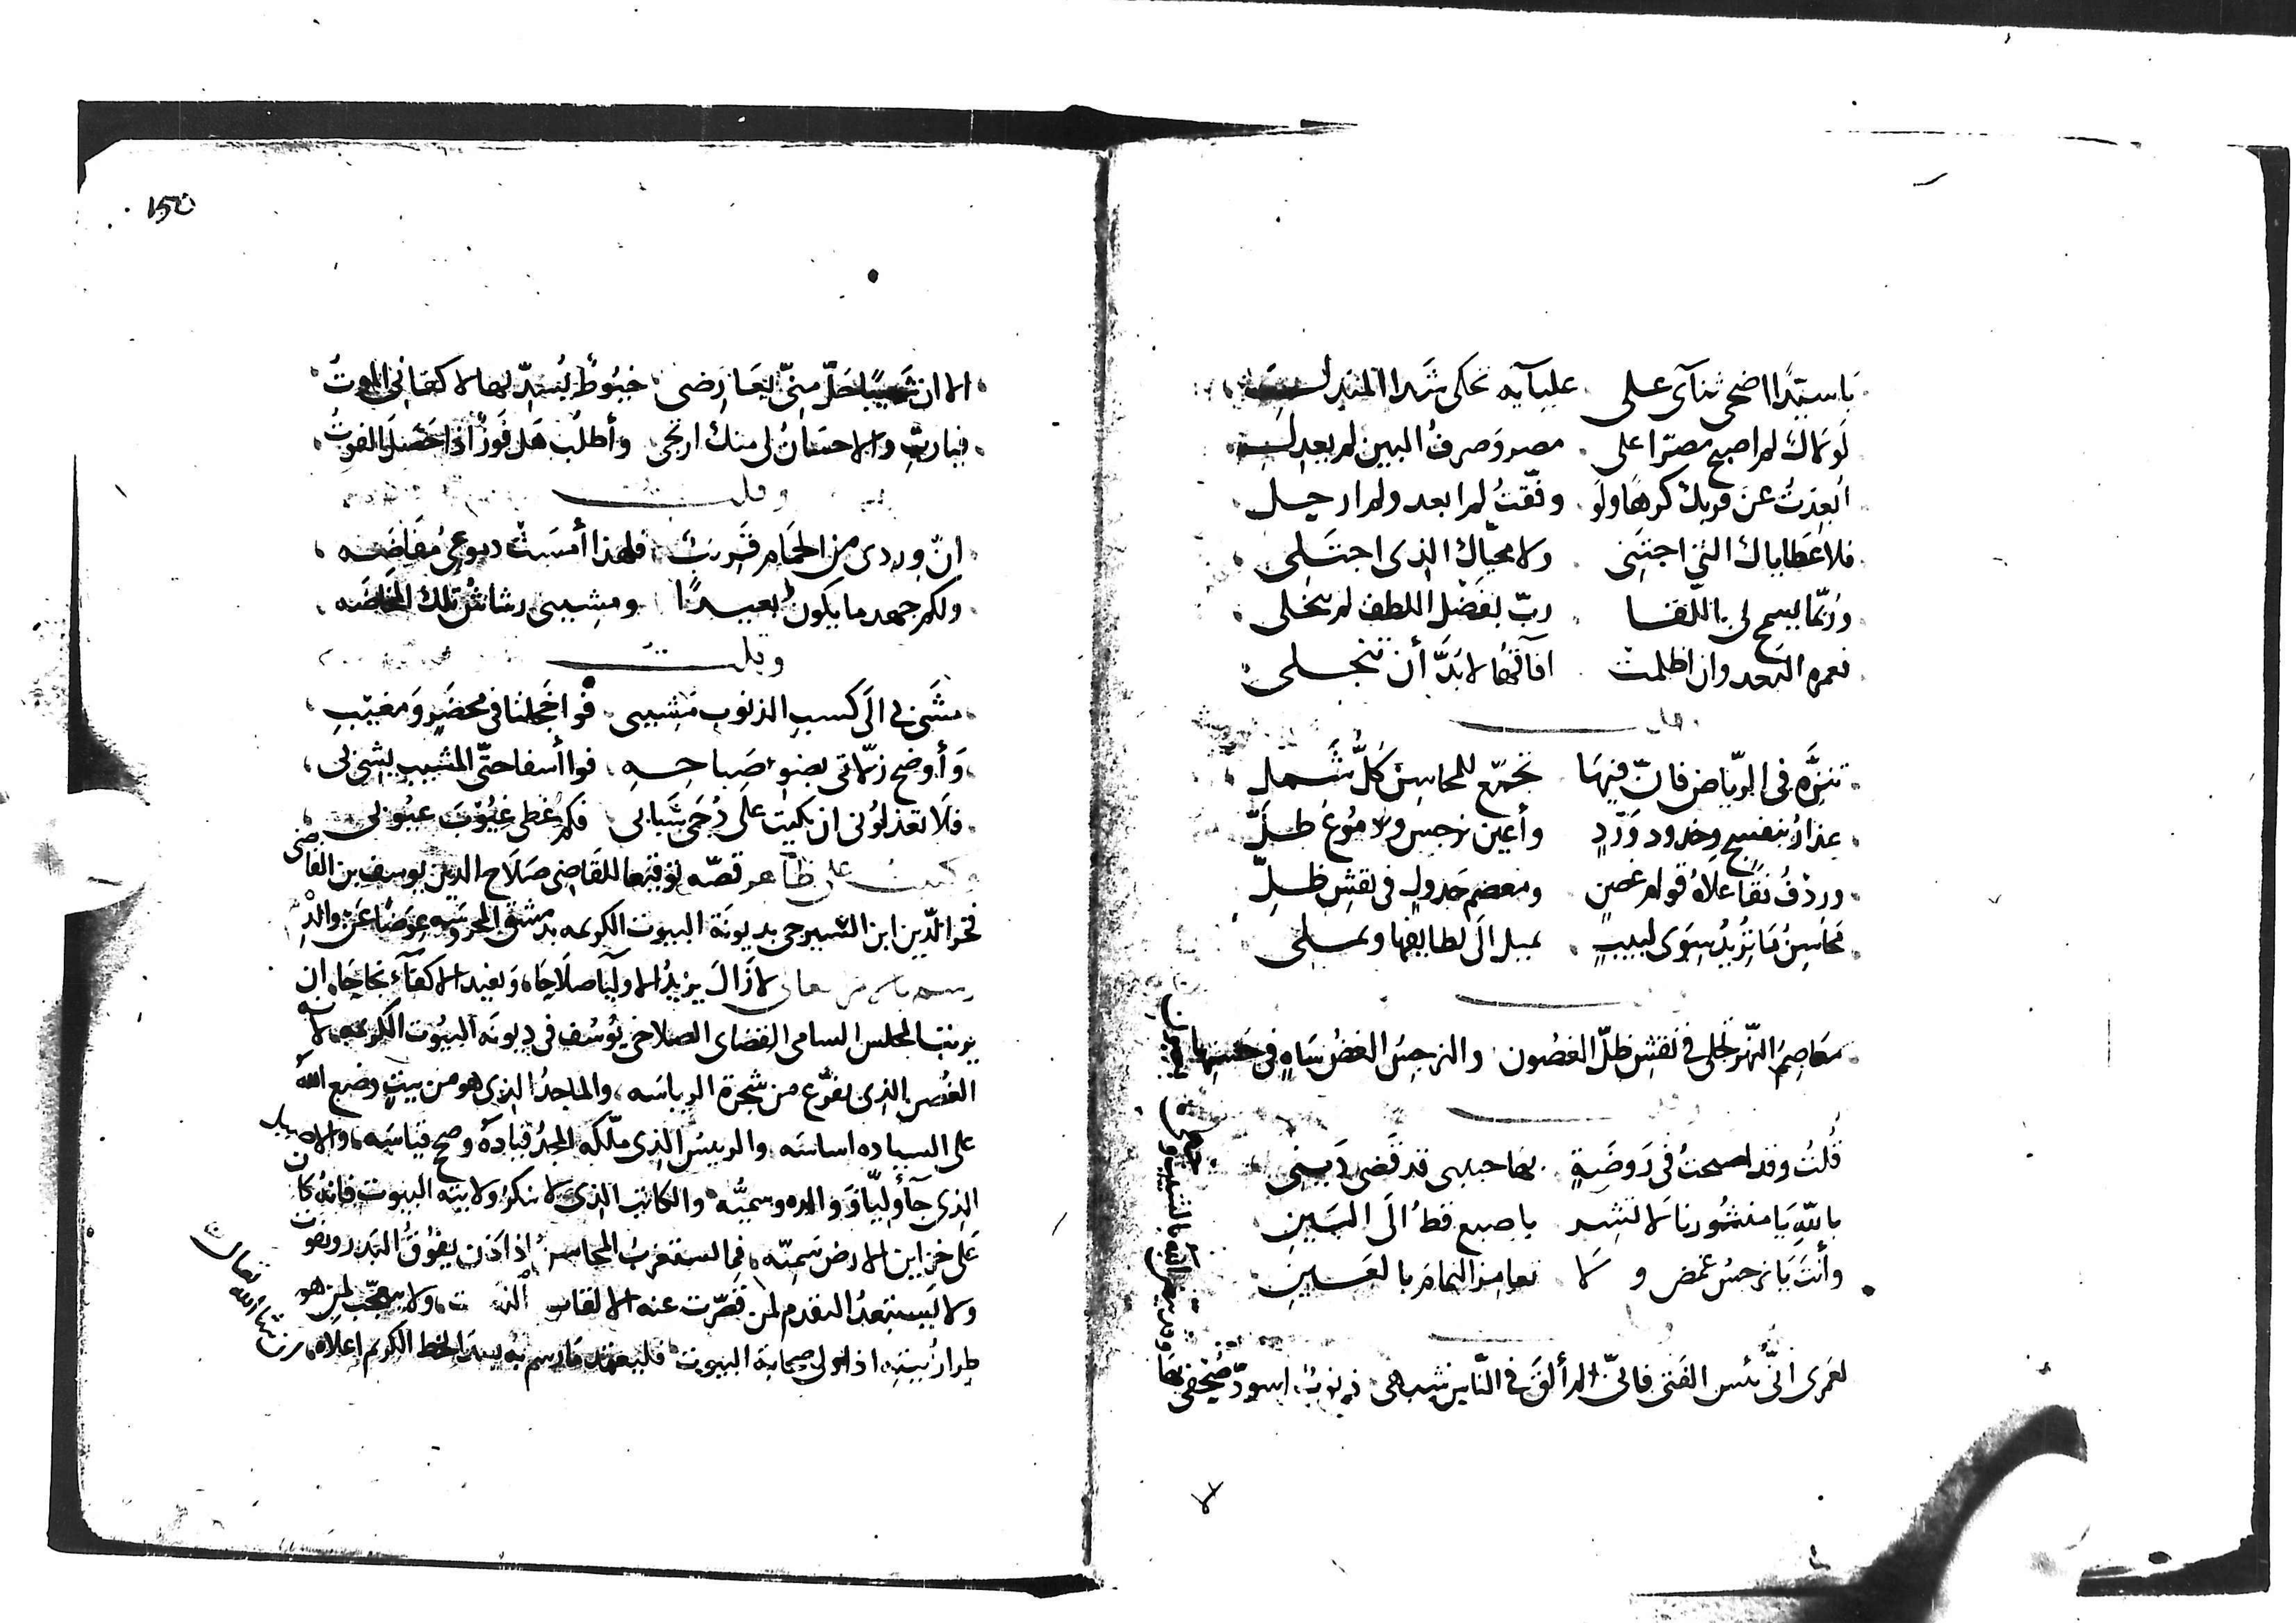 يا سيدا اضحى ثنآى على علياًيه تحكى شذا المندل
لولاك لم اصبح مصرّا على مصر وصرفُ البين لم يعدل
اُبعِدتُ عن قربك كرهًا ولو وفّقتُ لم ابعد ولم ارحل
فلا عَطاياك التى اجتَنِى ولا محيّاك الذى اجتَلى
ورُبّما يسمح لى باللّقا ربّ بفَضْل اللطف لم يبخل
فعمره البعد وان اظلمت آفاقُهَا لا بُدَّ أن تنجلى
تنزَّه فى الرّياض فانّ فيهَا تجمّع للمحاسِنِ كُلُّ شَمل
عذارُ بنفسجٍ وخدود وَرْدٍ وأعين نرجس ودموع طلّ
وردْفُ نقًا علاهُ قوام غصنٍ ومعصم جدولٍ فى نقشِ ظلِّ
محَاسِنُ مَا تُرِيدُ سِوَى لبيبٍ يميل الَى لطايفها ويملى
معَاصِمُ النّهر تجلى فى نقشِ ظلّ الغصُون والنرجسُ الغضُ سَاهٍ فى حسنها بعيون
قُلتُ وقد اصبحتُ فى رَوضَةٍ بها حبيبى قد قَضى دَينى
باللّهِ يَا منثُورنا لا تشِر باصبع قطُ الَى البَينِ
وأنتَ يَا نرجسُ غمض ولا تعامز النمام بالعَينِ
لعَمرى انّى بئس الفتى فانّى لم ألقَ فى النّاس شبهى ذنوبٌ اسودّ صُحْفى بها
وشيب ابيضّ وجهى
١٥٥
الا ان شيبًا حَلّ منّى بعَارضى خيُوطٌ تُسَدّى لها لا كفانى الموتُ
فيا ربِّ والاحسَانُ لى منك ارتجى وأطلُب هَل فوزٌ اذا حَصَل الفوتُ
وقلت
انّ وردى من الحمَام قرِيبٌ فلهذا أمسَتْ دموعى مُفَاضَه
ولكم جهد ما يكونُ بعيدًا ومشِيبى رشاشُ تلك المخَاضَه
وقلت
مشَى بى الَى كسبِ الذنوبِ مَشِيبى فواخجلتا فى محضَرٍ وَمَغيبِ
وَأوضح زلّاتى بضوءِ صَباحِهِ فوا أسفا حتّى المشيب يشى بى
فلَا تعذلوُنى ان بكيت علَى دُجَى شَبابى فكم غطى عيُوْبَ عيُوبى
وكتبت على ظاهر قصّه بتوقيعها للقَاضِى صَلَاح الدين يوسف بن القَاضى
فخر الدّين ابن الشيرجى بديونَة البيوت الكريمه بدمشق المحروسَه عِوَضًا عَن والدِهْ
رسم لا زَالَ يزيدُ الاوليآ صلاحًا، وَيفيد الاكفَآءَ نجاحًا، ان
يرتب المجلس السامى القضاى الصلاحى يُوسُف فى ديونَه البيُوت الكريمه لانه
الغُصن الذى تفرّع من شجرة الرياسَه، والماجدُ الذى هو من بيتٍ وضع اللهُ
على السياده اساسَه والرييس الذى ملّكه المجدُ قيادَهُ وصح قياسَه، والاصيل
الذى جآ أوليّا وَوالده وسميّه والكاتب الذى لا ننكر ولايته البيوت فانهُ كان
عَلى خزاين الارض سَمِيّه، فما استغرب المحاسنُ اذا اذن يفوُقُ البَدر ويفوت
ولا يَستبعدُ التقدم لمن قصّرت عنه الالقاب ولا يتعجّب لمن هو
طرازُ بيتِهِ، اذا ولى صحابة البيوت فليعتمد مَا رسم به بسندِ الخط الكريم اعلاه، ان شا الله تعالى